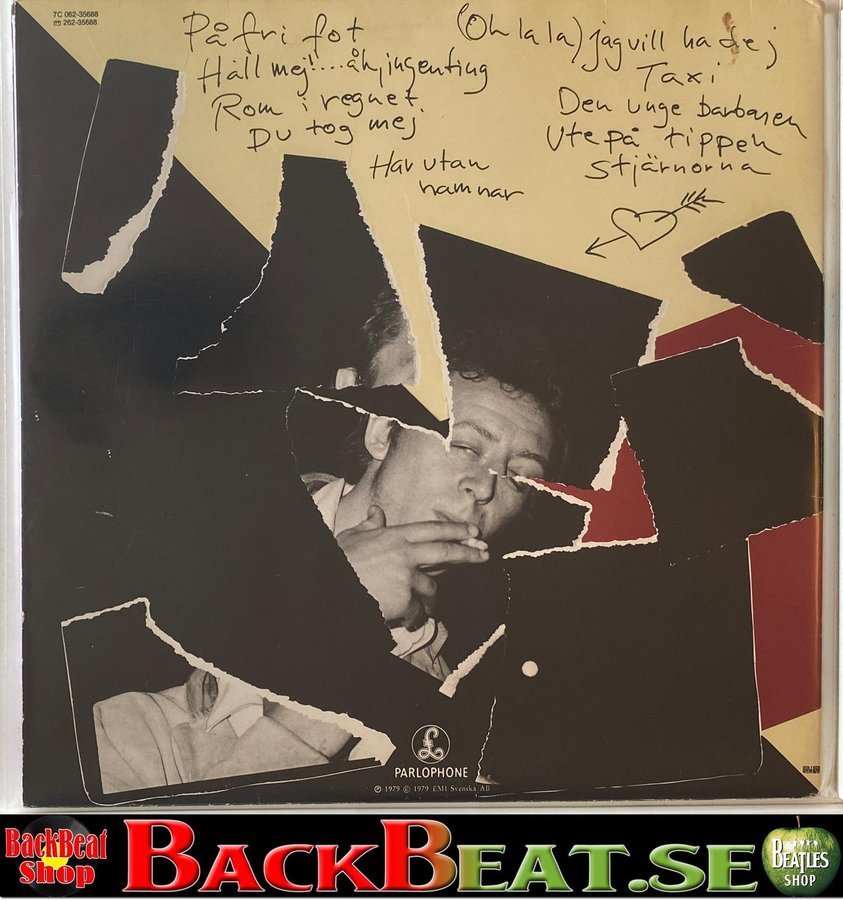 7C 062-35688
262-35688
På fri fot
Håll mej!....åh, ingenting
Rom i regnet.
Du tog mej
Har utan
namnar
(Oh la la) jag vill ha dej
Taxi
Den unge barbaren
Ute på tippen
Stjärnorna
£
PARLOPHONE
℗ 1979 © 1979 EMI Svenska AB
BackBeat
Shop
BACKBEAT.SE
BEATLES
SHOP